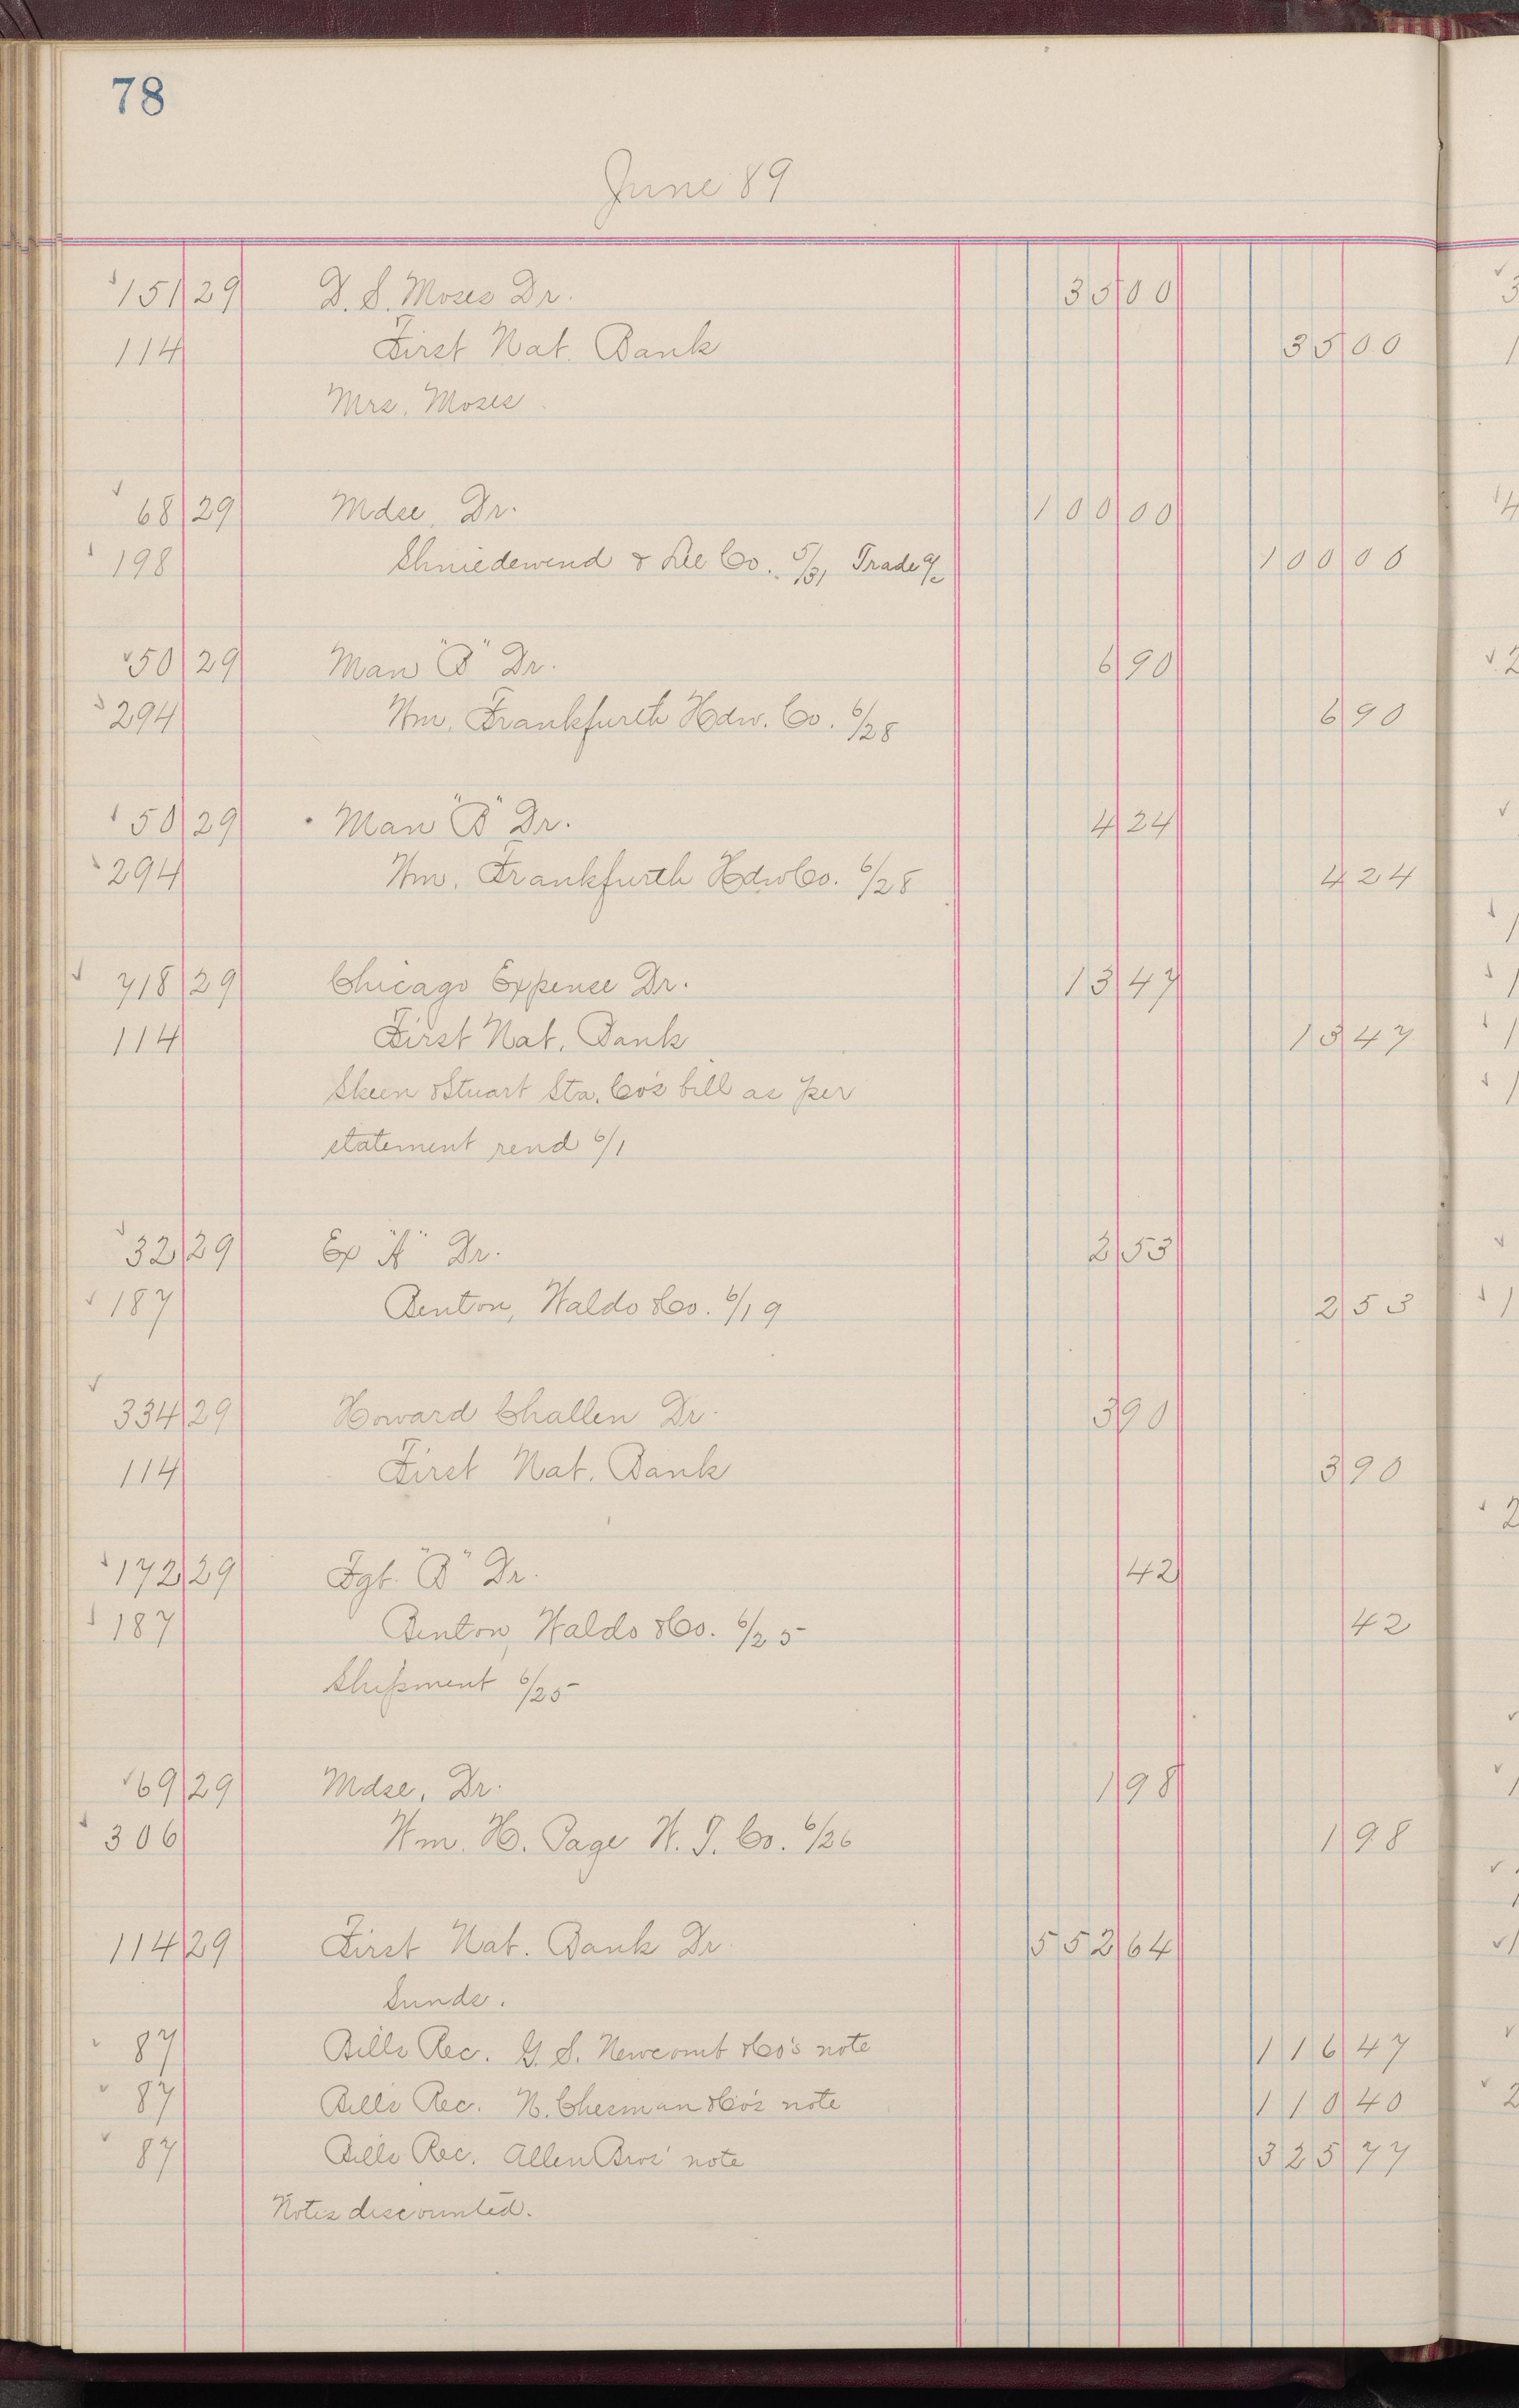 78
June 89
151 29 D. S. Moses Dr. 35 00
114 First Nat. Bank 35 00
Mrs. Moses.
68 29 Mdse, Dr. 100 00
198 Shniedewend & Lee Co. 5/31 Trade a/c 100 00
50 29 Man "B" Dr. 6 90
294 Wm. Frankfurth Hdw. Co. 6/28 6 90
50 29 Man "B" Dr. 4 24
294 Wm. Frankfurth Hdw Co. 6/28 4 24
718 29 Chicago Expense Dr. 13 47
114 First Nat. Bank 13 47
Skeen & Stuart Sta. Co's bill as per
statement rend 6/1
32 29 Ex "A" Dr. 2 53
187 Benton, Waldo & Co. 6/19 2 53
334 29 Howard Challen Dr. 3 90
114 First Nat. Bank 3 90
172 29 Fgt. "B" Dr. 42
187 Benton, Waldo & Co. 6/25 42
Shipment 6/25
69 29 Mdse, Dr. 1 98
306 Wm. H. Page W. T. Co. 6/26 1 98
114 29 First Nat. Bank Dr. 552 64
Sunds.
87 Bills Rec. G. S. Newcomb & Co's note 116 47
87 Bills Rec. N. Chesman & Co's note 110 40
87 Bills Rec. Allen Bros' note 325 77
Notes discounted.